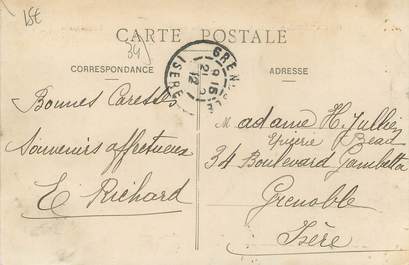 15€
34)
CARTE POSTALE
CORRESPONDANCE
ADRESSE
GRENOBLE
ISERE
Bonnes Caresses
Souvenirs affectueux
E Richard
Madame H. Jullien
Epicerie Beau
34 Boulevard Gambetta
Grenoble
Isère